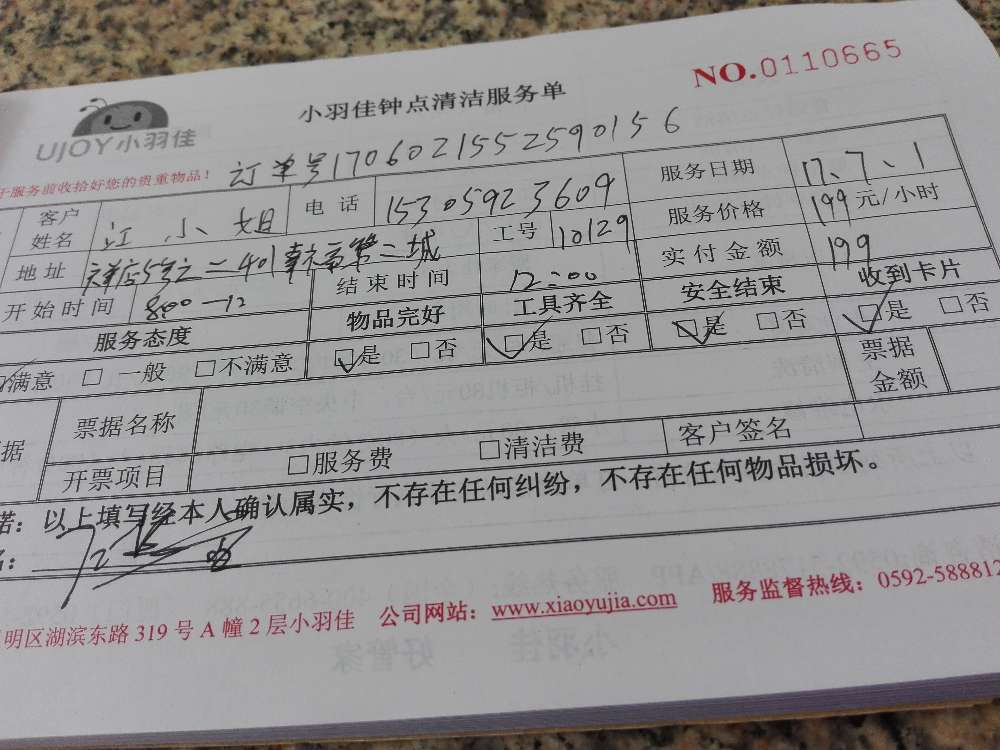 NO.0110665
UJOY小羽佳
小羽佳钟点清洁服务单
于服务前收拾好您的贵重物品! 订单号170602155259015 6
客户姓名 江小姐 电话 15305923609 服务日期 17.7、1
地址 祥店 二401 第二城 工号 10129 服务价格 199元/小时
开始时间 800-12 结束时间 12:00 实付金额 199
服务态度 物品完好 工具齐全 安全结束 收到卡片
满意 □ 一般 □不满意 □是 □否 □是 □否 □是 □否 □是 □否
据 票据名称 票据金额
开票项目 □服务费 □清洁费 客户签名
诺:以上填写经本人确认属实,不存在任何纠纷,不存在任何物品损坏。
名:
明区湖滨东路 319 号 A 幢 2 层小羽佳 公司网站:www.xiaoyujia.com 服务监督热线:0592-588812